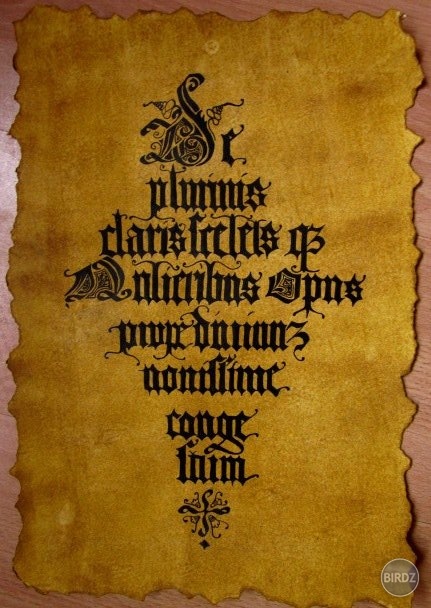 De
plurimis
claris sceletis qꝫ
Mulieribus Opus
prope diuinuz
nouissime
conge
stum
BIRDZ